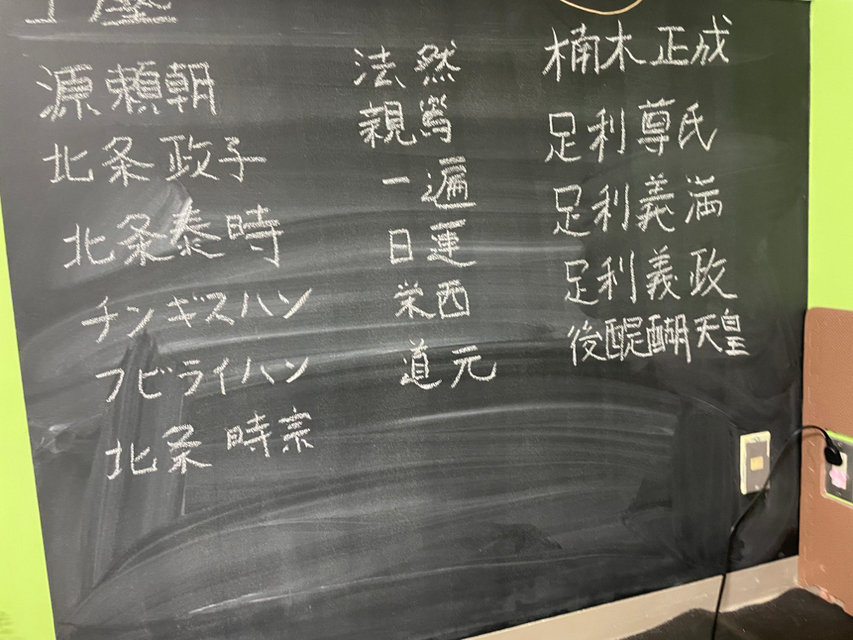 源頼朝
北条政子
北条泰時
チンギスハン
フビライハン
北条時宗
法然
親鸞
一遍
日運
栄西
道元
楠木正成
足利尊氏
足利義満
足利義政
後醍醐天皇